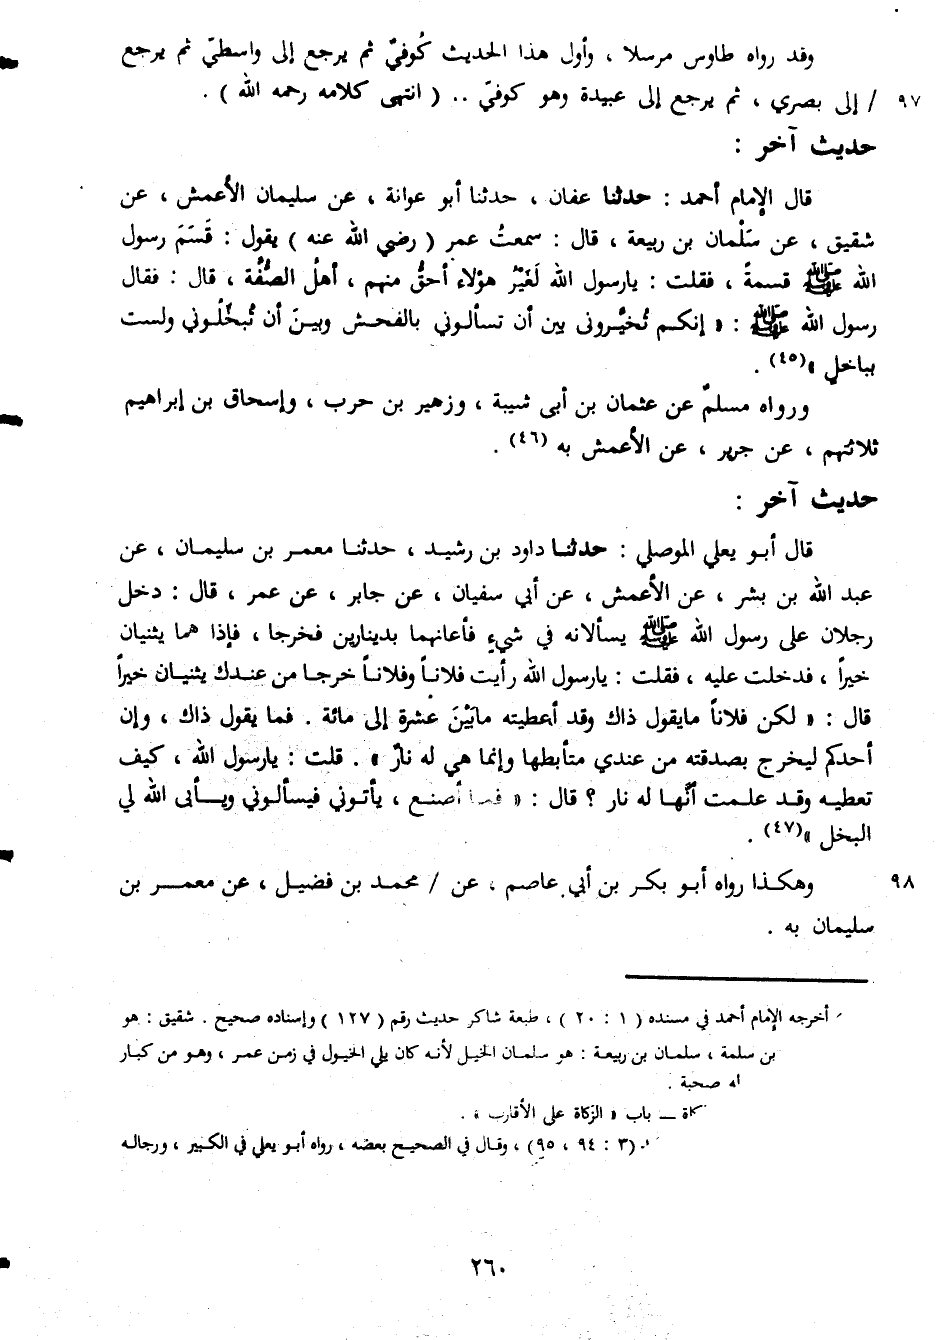 وقد رواه طاوس مرسلا ، وأول هذا الحديث كُوفيّ ثم يرجع إلى واسطيّ ثم يرجع
٩٧ / إلى بصري ، ثم يرجع إلى عبيدة وهو كوفيّ .. ( انتهى كلامه رحمه الله ) .
حديث آخر :
قال الإمام أحمد : حدثنا عفان ، حدثنا أبو عوانة ، عن سليمان الأعمش ، عن
شقيق ، عن سَلْمان بن ربيعة ، قال : سمعتُ عمر ( رضي الله عنه ) يقول : قَسَمَ رسول
الله ﷺ قسمةً ، فقلت : يارسول الله لَغَيْرُ هؤلاء أحقُّ منهم ، أهلُ الصُّفَّة ، قال : فقال
رسول الله ﷺ : « إنكم تُخيِّرونى بين أن تسألوني بالفحش وبينَ أن تُبخِّلُوني ولست
بباخلٍ »(٤٥) .
ورواه مسلمٌ عن عثمان بن أبى شيبة ، وزهير بن حرب ، وإسحاق بن إبراهيم
ثلاثتهم ، عن جرير ، عن الأعمش به (٤٦) .
حديث آخر :
قال أبو يعلي الموصلي : حدثنا داود بن رشيد ، حدثنا معمر بن سليمان ، عن
عبد الله بن بشر ، عن الأعمش ، عن أبي سفيان ، عن جابر ، عن عمر ، قال : دخل
رجلان على رسول الله ﷺ يسألانه في شيءٍ فأعانهما بدينارين فخرجا ، فإذا هما يثنيان
خيراً ، فدخلت عليه ، فقلت : يارسول الله رأيت فلاناً وفلاناً خرجا من عندك يثنيان خيراً
قال : « لكن فلاناً مايقول ذاك وقد أعطيته مابَيْنَ عشرة إلى مائة . فما يقول ذاك ، وإن
أحدكم ليخرج بصدقته من عندي متأبطها وإنما هي له نارٌ » . قلت : يارسول الله ، كيف
تعطيه وقد علمت أنَّها له نار ؟ قال : « فما أصنع ، يأتوني فيسألوني ويأبى الله لي
البخل »(٤٧) .
٩٨ وهكذا رواه أبو بكر بن أبي عاصم ، عن / محمد بن فضيل ، عن معمر بن
سليمان به .
أخرجه الإمام أحمد في مسنده ( ١ : ٢٠ ) ، طبعة شاكر حديث رقم ( ١٢٧ ) وإسناده صحيح . شقيق : هو
بن سلمة ، سلمان بن ربيعة : هو سلمان الخيل لأنه كان يلي الخيول في زمن عمر ، وهو من كبار
له صحبة .
كاة ــ باب « الزكاة على الأقارب » .
(٣ : ٩٤ ، ٩٥) ، وقال في الصحيح بعضه ، رواه أبو يعلي في الكبير ، ورجاله
٢٦٠